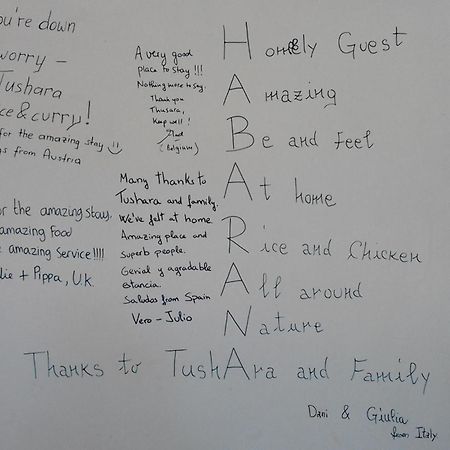 ou're down
worry –
Tushara
ce & curry!
for the amazing stay
gs from Austria
or the amazing stay,
amazing food
e amazing Service!!!!
lie + Pippa, U.K.
A very good
place to stay !!!
Nothing more to say.
Thank you
Thusara,
Keep well !
(Belgium)
Many thanks to
Tushara and family.
We've felt at home.
Amazing place and
superb people.
Genial y agradable
estancia.
Saludos from Spain
Vero – Julio
Homely Guest
Amazing
Be and Feel
At home
Rice and Chicken
All around
Nature
Thanks to TushAra and Family
Dani & Giulia
from Italy